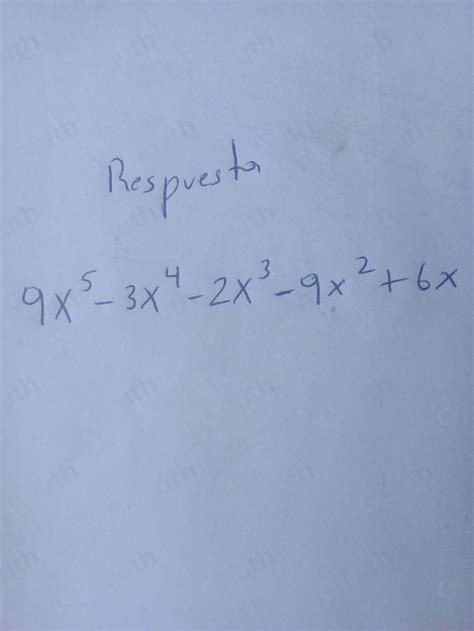 Respuesta
9x⁵-3x⁴-2x³-9x²+6x